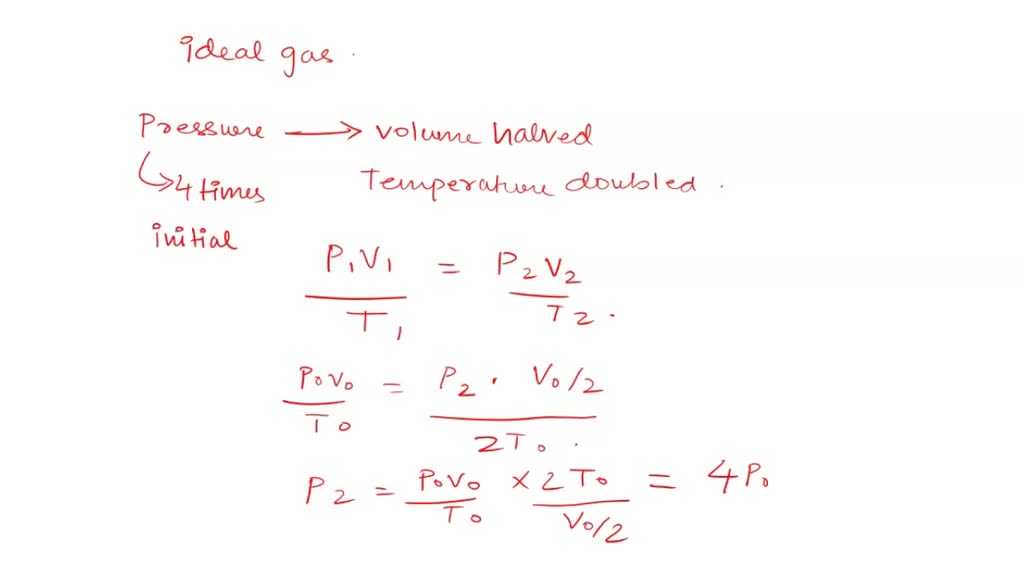 ideal gas.
Pressure → volume halved
↳ 4 times Temperature doubled.
initial
P₁V₁ / T₁ = P₂V₂ / T₂.
P₀V₀ / T₀ = P₂ · V₀/2 / 2T₀.
P₂ = P₀V₀ / T₀ × 2T₀ / V₀/2 = 4P₀